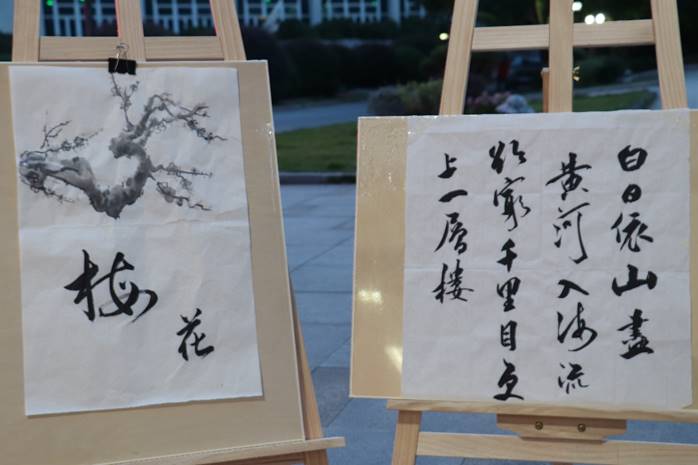 梅
花
白日依山盡
黄河入海流
欲窮千里目更
上一層樓